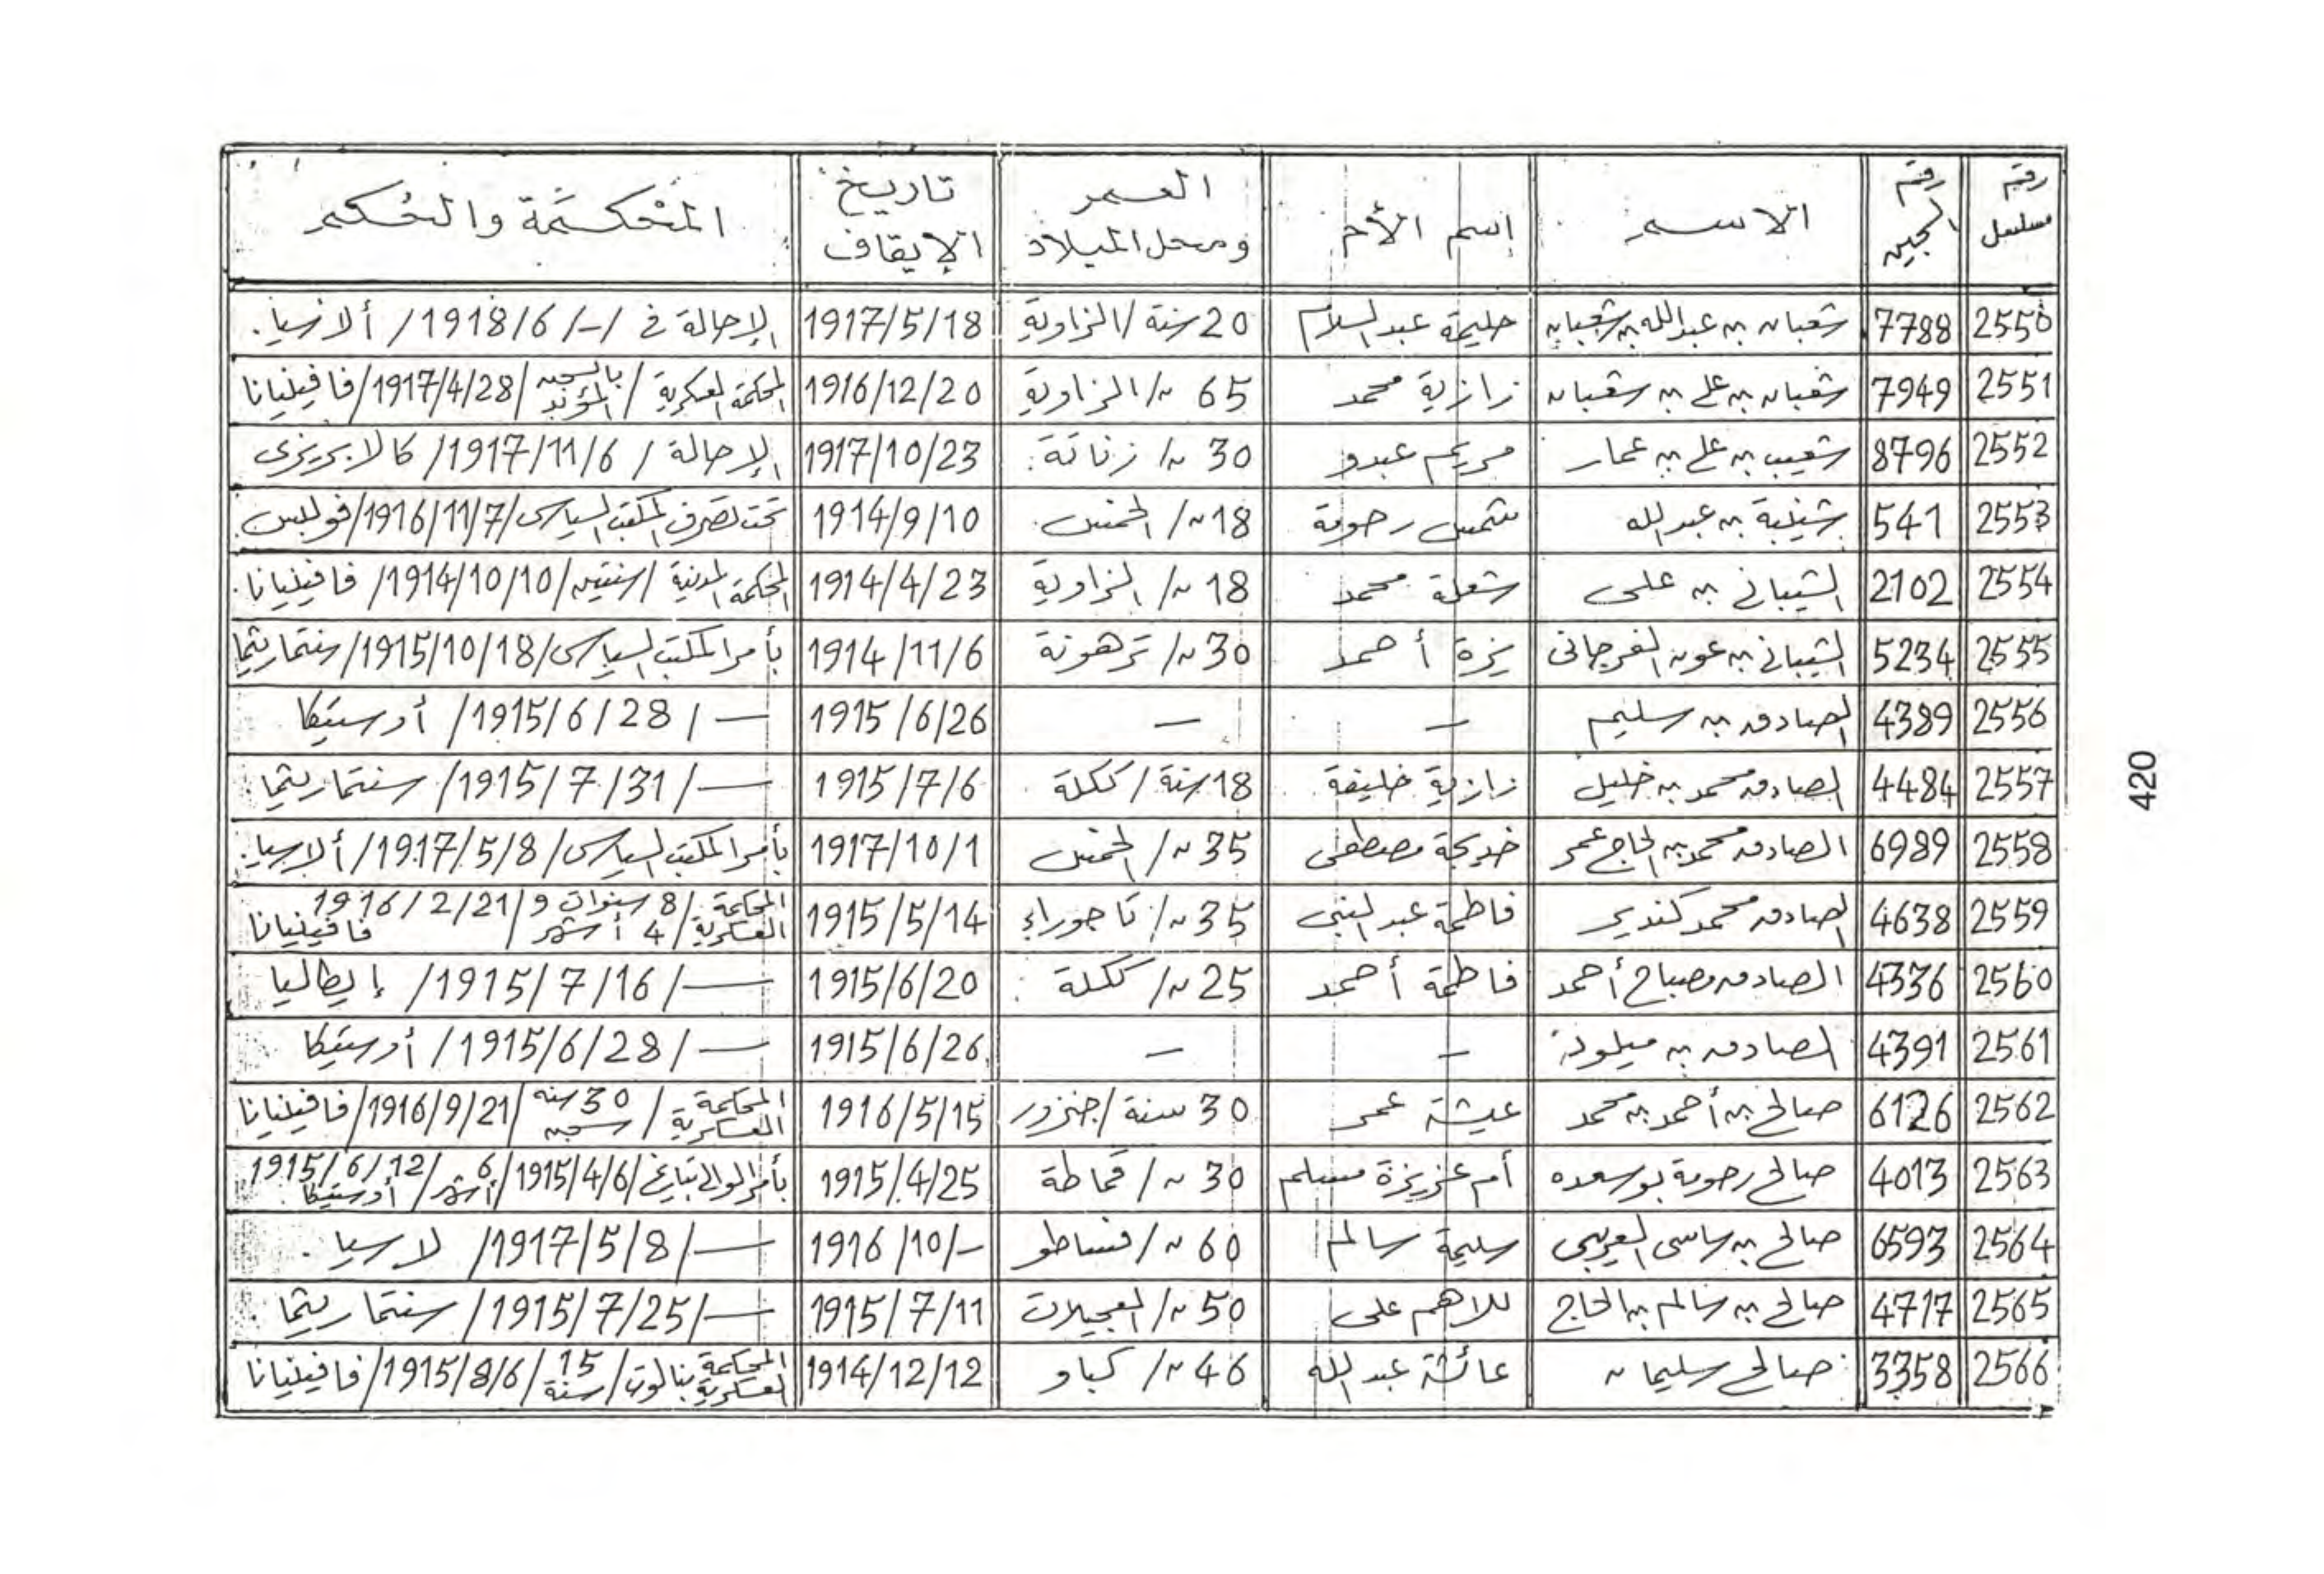 رقم مسلسل | رقم السجين | الاسم | إسم الأم | العمر ومحل الميلاد | تاريخ الإيقاف | المحكمة والحكم
2550 | 7788 | شعبان بن عبدالله بن شعبان | حليمة عبدالسلام | 20 سنة / الزاوية | 1917/5/18 | الإحالة في /-/ 1918/6 / ألازسيا.
2551 | 7949 | شعبان بن علي بن شعبان | زازية محمد | 65 ~/ الزاوية | 1916/12/20 | المحكمة العسكرية / بالسجن المؤبد / 1917/4/28 / فافينيانا
2552 | 8796 | شعيب بن علي بن عمار | مريم عبدو | 30 ~/ زناتة | 1917/10/23 | الإحالة / 1917/11/6 / كالابريزى
2553 | 541 | بن عبدالله | شمس رحومة | 18 ~/ الخمس | 1914/9/10 | تحت تصرف المكتب السياسى / 1916/11/7 /
2554 | 2102 | الشيبانى بن على | شعلة محمد | 18 ~/ الزاوية | 1914/4/23 | المحكمة المدنية / سنتين / 1914/10/10 / فافينيانا.
2555 | 5234 | الشيبانى بن عون الفرجانى | يزة أحمد | 30 ~/ ترهونة | 1914/11/6 | بأمر المكتب السياسى / 1915/10/18 / سنتماريثما
2556 | 4389 | الصادق بن سليم | - | - | 1915/6/26 | — / 1915/6/28 / أوستيكا
2557 | 4484 | الصادق محمد بن خليل | زازية خليفة | 18 سنة / ككلة | 1915/7/6 | — / 1915/7/31 / سنتماريثما
2558 | 6989 | الصادق محمد بن الحاج عمر | خديجة مصطفى | 35 ~/ الخمس | 1917/10/1 | بأمر المكتب السياسى / 1917/5/8 / ألارسيا.
2559 | 4638 | الصادق محمد كندير | فاطمة عبدالنبى | 35 ~/ تاجوراء | 1915/5/14 | المحكمة العسكرية / 8 سنوات و 4 أشهر / 1916/2/21 فافينيانا
2560 | 4336 | الصادق مصباح أحمد | فاطمة أحمد | 25 ~/ ككلة | 1915/6/20 | — / 1915/7/16 / إيطاليا
2561 | 4391 | الصادق بن ميلود | - | - | 1915/6/26 | — / 1915/6/28 / أوستيكا
2562 | 6126 | صالح بن أحمد بن محمد | عيشة عمر | 30 سنة / جنزور | 1916/5/15 | المحكمة العسكرية / 30 سنة سجن / 1916/9/21 / فافينيانا
2563 | 4013 | صالح رحومة بوسعده | أم عزيزة مسلم | 30 ~/ قماطة | 1915/4/25 | بأمر الوالى بتاريخ / 1915/4/6 / 6 أشهر / 1915/6/12 أوستيكا
2564 | 6593 | صالح بن ساسى العريبى | سليمة سالم | 60 ~/ فساطو | 1916/10/- | — / 1917/5/8 / لارسيا.
2565 | 4717 | صالح بن سالم بن الحاج | للاهم على | 50 ~/ العجيلات | 1915/7/11 | — / 1915/7/25 / سنتماريثما.
2566 | 3358 | صالح سليمان | عائشة عبدالله | 46 ~/ كباو | 1914/12/12 | المحكمة العسكرية بنالوت / 15 سنة / 1915/8/6 / فافينيانا
420